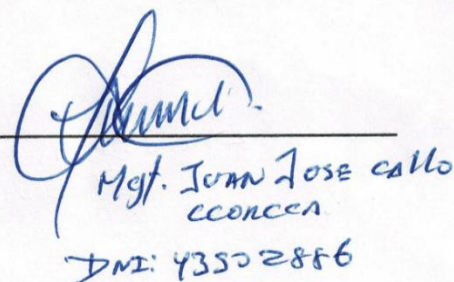 Mgt. JUAN JOSE CALLO
CCORCCA
DNI: 43502886